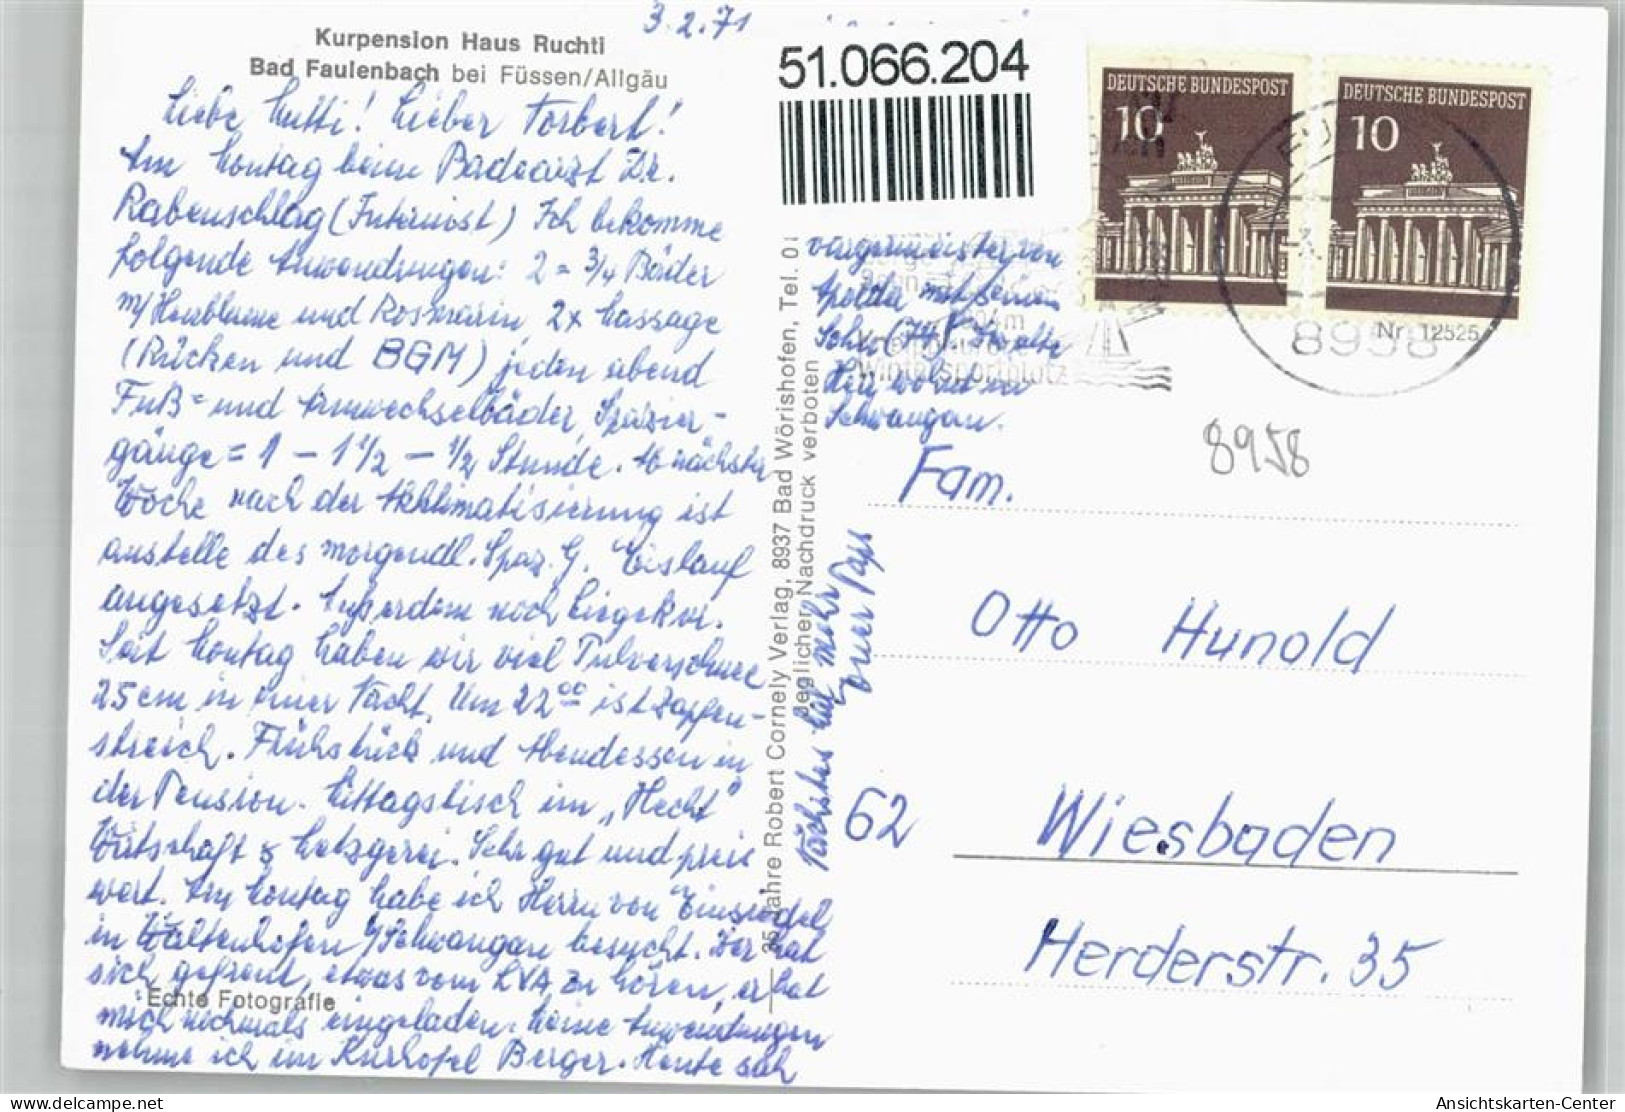 3.2.71
Kurpension Haus Ruchti
Bad Faulenbach bei Füssen/Allgäu
Liebe Mutti! Lieber Norbert!
Am Montag beim Badearzt Dr.
Rabenschlag (Internist) Ich bekomme
folgende Anwendungen: 2 = 3/4 Bäder
m/Heublume und Rosmarin, 2x Massage
(Rücken und BGM) jeden abend
Fuß= und Armwechselbäder, Spazier-
gänge = 1 – 1 1/2 – 1/2 Stunde. Ab nächster
Woche nach der Akklimatisierung ist
anstelle des morgendl. Spaz. G. Eislauf
angesetzt. Außerdem noch Liegekur.
Seit Montag haben wir viel Pulverschnee
25 cm in einer Nacht. Um 22 00 ist Zapfen-
streich. Frühstück und Abendessen in
der Pension. Mittagstisch im „Hecht"
Wirtschaft & Metzgerei. Sehr gut und preis
wert. Am Montag habe ich Herrn von Einsiedel
in Waltenhofen b/Schwangau besucht. Der hat
sich gefreut, etwas vom LVA zu hören, er hat
mich nochmals eingeladen. Meine Anwendungen
nehme ich im Kurhotel Berger. Heute sah
Echte Fotografie
51.066.204
Bürgermeister von
Apolda mit seinem
Sohn (74 J.
Schwangau.
Nächstes Mal mehr
Euer Papi
35 Jahre Robert Cornely Verlag, 8937 Bad Wörishofen, Tel. 0
Jeglicher Nachdruck verboten
DEUTSCHE BUNDESPOST
10
DEUTSCHE BUNDESPOST
10
Nr. 12525
8958
Wintersportplatz
8958
Fam.
Otto Hunold
62 Wiesbaden
Herderstr. 35
delcampe.net
Ansichtskarten-Center